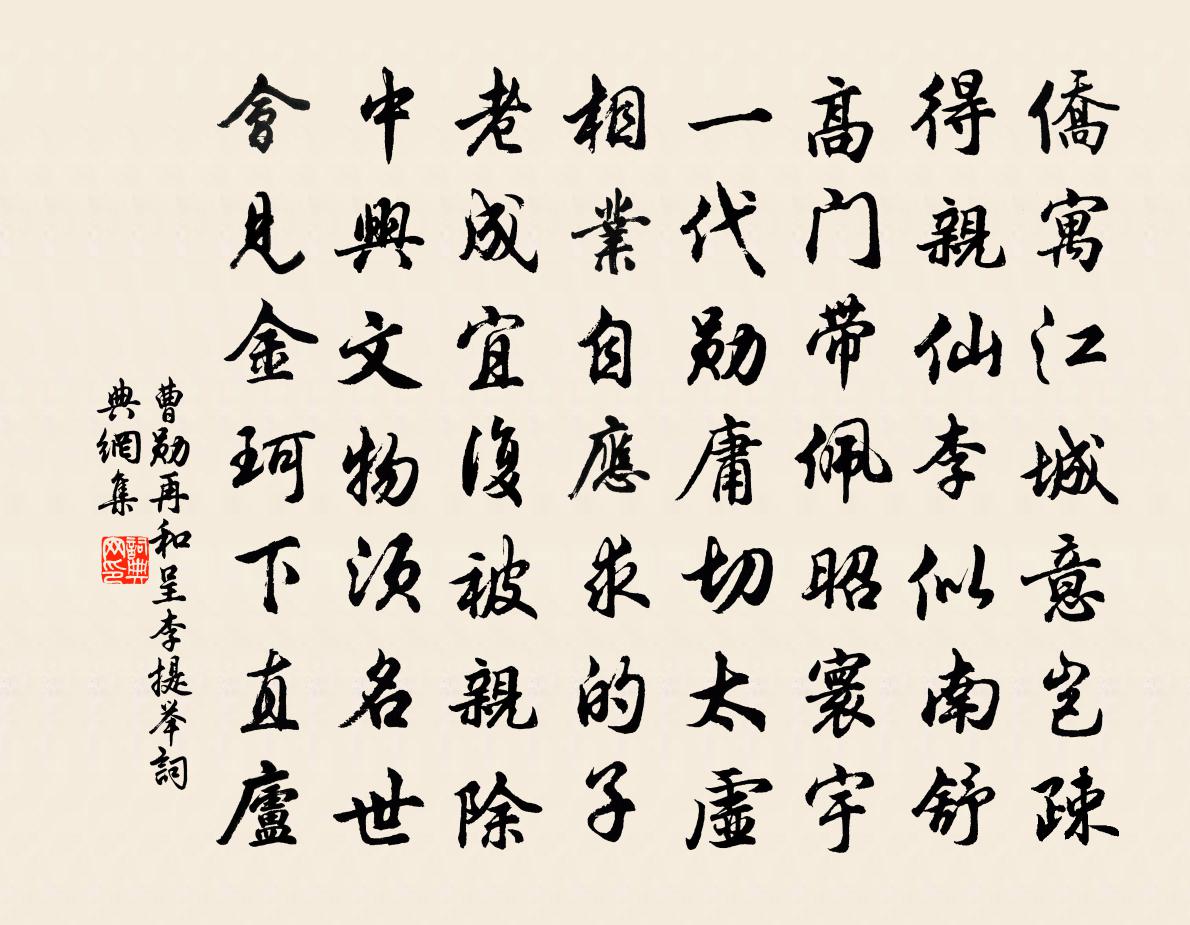 僑寓江城意豈疎
得親仙李似南舒
高门帶佩昭寰宇
一代勋庸切太虛
相業自應求的子
老成宜復被親除
中興文物须名世
會見金珂下直廬
曹勋再和呈李提举詞
典網集
詞典
网印